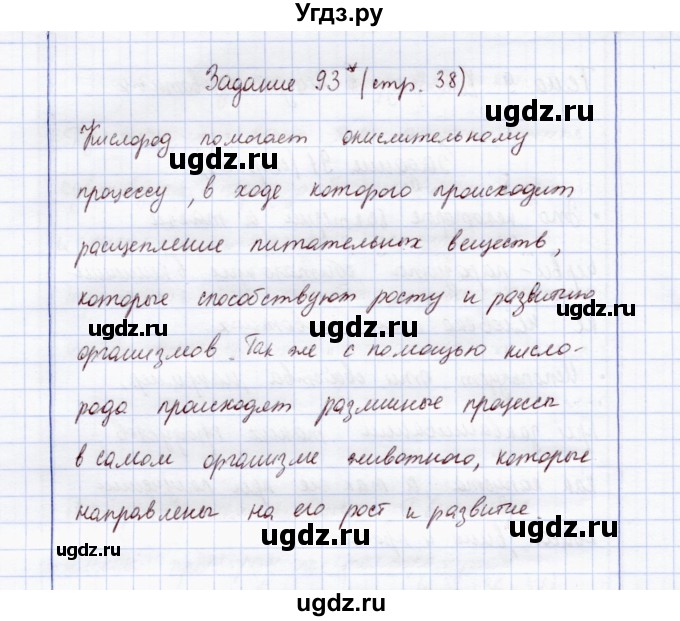 Угдз.ру
Задание 93* (стр. 38)
Кислород помогает окислительному
ugdz.ru ugdz.ru
процессу, в ходе которого происходит
расщепление питательных веществ,
которые способствуют росту и развитию
ugdz.ru ugdz.ru ugdz.ru
организмов. Так же с помощью кисло-
рода происходят различные процессы
ugdz.ru ugdz.ru
в самом организме животного, которые
направлены на его рост и развитие.
ugdz.ru ugdz.ru ugdz.ru
ugdz.ru